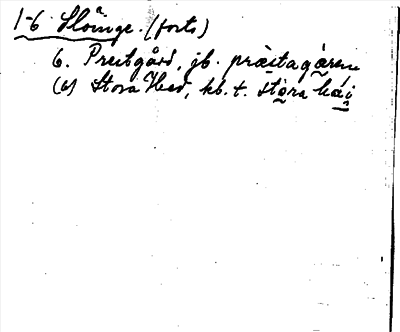 1-6 Slöinge. (forts)
6. Prestgård, jb. præstagáren
(6) Stora Hed, kb. t. stora hæi